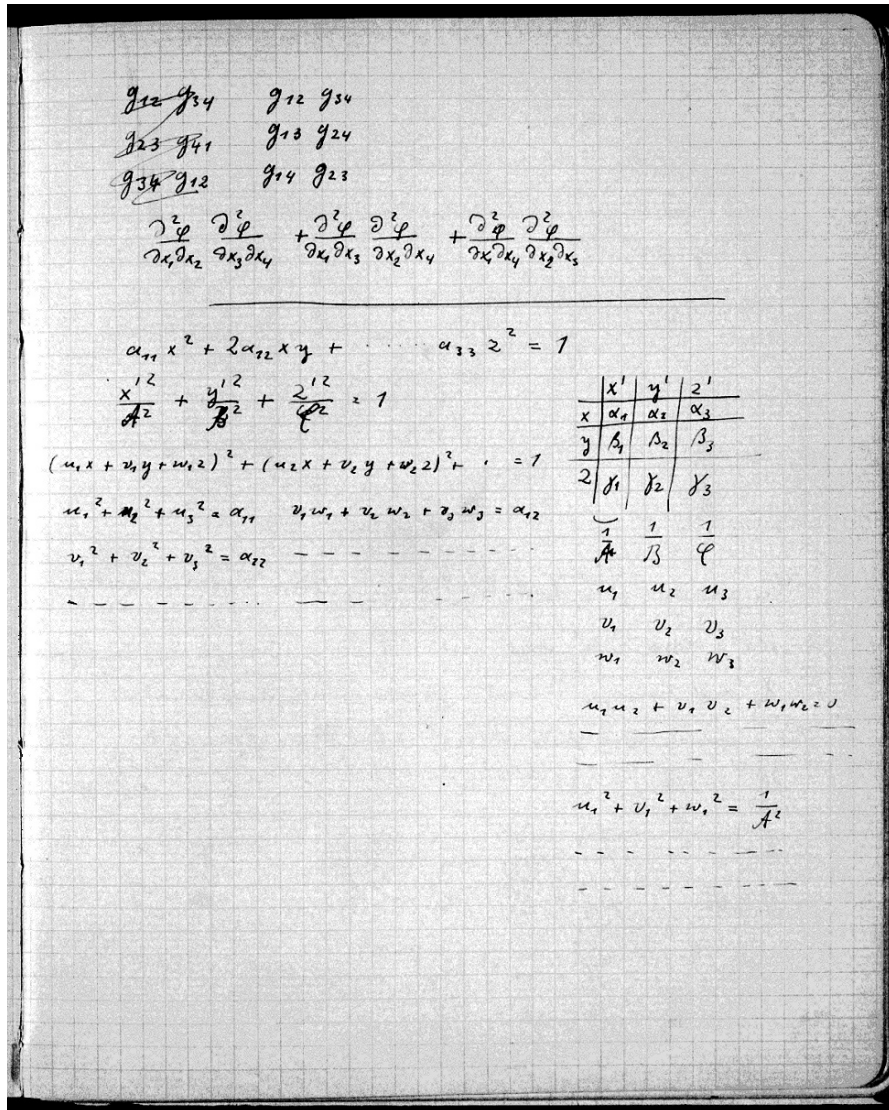 g₁₂ g₃₄ g₁₂ g₃₄
g₂₃ g₄₁ g₁₃ g₂₄
g₃₄ g₁₂ g₁₄ g₂₃
∂²φ/∂x₁∂x₂ ∂²φ/∂x₃∂x₄ + ∂²φ/∂x₁∂x₃ ∂²φ/∂x₂∂x₄ + ∂²φ/∂x₁∂x₄ ∂²φ/∂x₂∂x₃
a₁₁ x² + 2a₁₂ xy + ····· a₃₃ z² = 1
x'²/A² + y'²/B² + z'²/C² = 1
(u₁x + v₁y + w₁z)² + (u₂x + v₂y + w₂z)² + · = 1
u₁² + u₂² + u₃² = a₁₁ v₁w₁ + v₂w₂ + v₃w₃ = a₁₂
v₁² + v₂² + v₃² = a₂₂ – – – – – – – –
– – – – – – – – – – – –
x' y' z'
x α₁ α₂ α₃
y β₁ β₂ β₃
z γ₁ γ₂ γ₃
1/A 1/B 1/C
u₁ u₂ u₃
v₁ v₂ v₃
w₁ w₂ w₃
u₁u₂ + v₁v₂ + w₁w₂ = 0
— — — —
— — – — –
u₁² + v₁² + w₁² = 1/A²
– – – – – –
– – – – – –